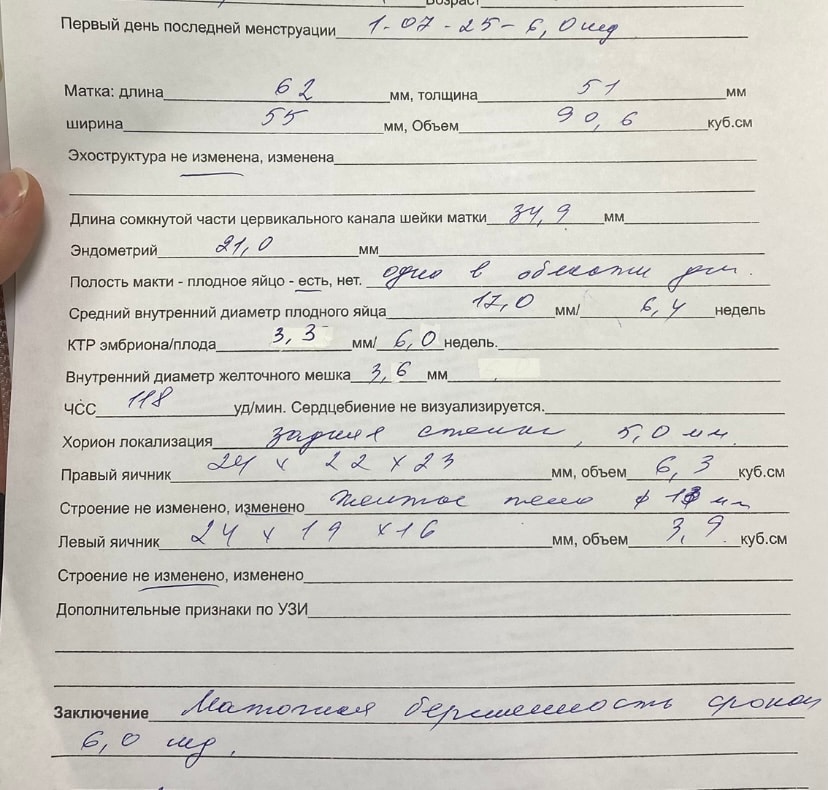 Возраст
Первый день последней менструации 1-07-25 - 6,0 нед
Матка: длина 62 мм, толщина 51 мм
ширина 55 мм, Объем 90,6 куб.см
Эхоструктура не изменена, изменена
Длина сомкнутой части цервикального канала шейки матки 34,9 мм
Эндометрий 21,0 мм
Полость макти - плодное яйцо - есть, нет. одно в области дна.
Средний внутренний диаметр плодного яйца 17,0 мм/ 6,4 недель
КТР эмбриона/плода 3,3 мм/ 6,0 недель.
Внутренний диаметр желточного мешка 3,6 мм
ЧСС 118 уд/мин. Сердцебиение не визуализируется.
Хорион локализация задняя стенка, 5,0 мм.
Правый яичник 24 х 22 х 23 мм, объем 6,3 куб.см
Строение не изменено, изменено желтое тело ф мм
Левый яичник 24 х 19 х 16 мм, объем 3,9 куб.см
Строение не изменено, изменено
Дополнительные признаки по УЗИ
Заключение Маточная беременность сроком
6,0 нед.